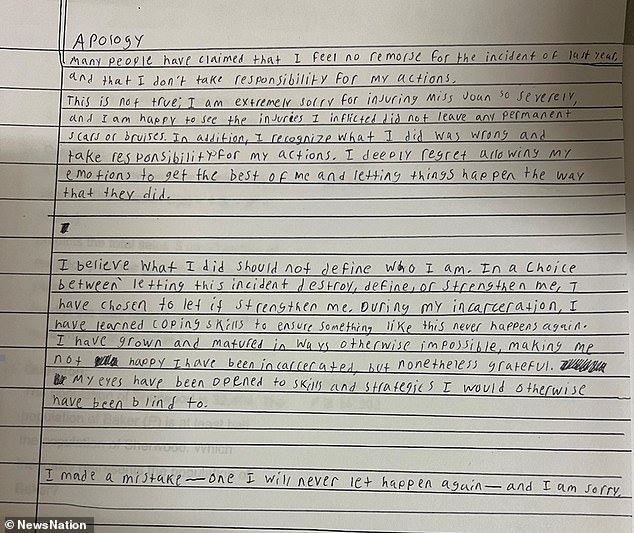 Apology
Many people have claimed that I feel no remorse for the incident of last year,
and that I don't take responsibility for my actions.
This is not true; I am extremely sorry for injuring Miss Joan so severely,
and I am happy to see the injuries I inflicted did not leave any permanent
scars or bruises. In addition, I recognize what I did was wrong and
take responsibility for my actions. I deeply regret allowing my
emotions to get the best of me and letting things happen the way
that they did.
I believe what I did should not define who I am. In a choice
between letting this incident destroy, define, or strengthen me, I
have chosen to let it strengthen me. During my incarceration, I
have learned coping skills to ensure something like this never happens again.
I have grown and matured in ways otherwise impossible, making me
not happy I have been incarcerated, but nonetheless grateful.
My eyes have been opened to skills and strategies I would otherwise
have been blind to.
I made a mistake — one I will never let happen again — and I am sorry.
© NewsNation